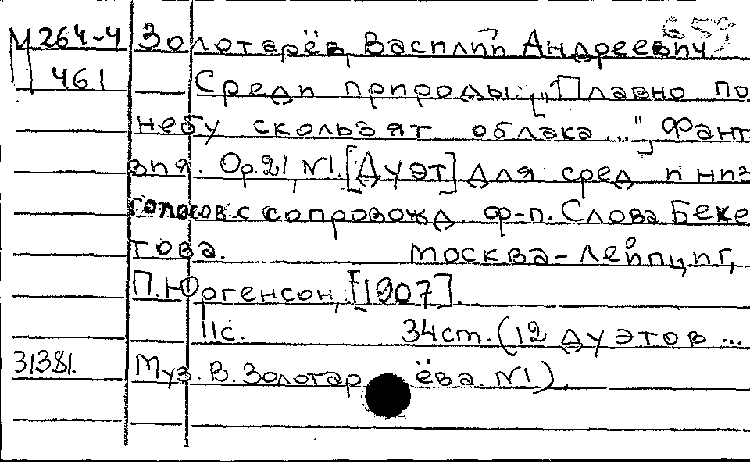 653
М 264-4 Золотарёв, Василий Андреевич.
461 Среди природы: „Плавно по
небу скользят облака...", Фант
зия. Op.21 №1. [Дуэт] для сред и низ
голосов с сопровожд ф-п. Слова Беке
това. Москва-Лейпциг,
П. Юргенсон, [1907].
11с. 34ст. (12 дуэтов ...
31381. Муз. В. Золотарёва. №1).